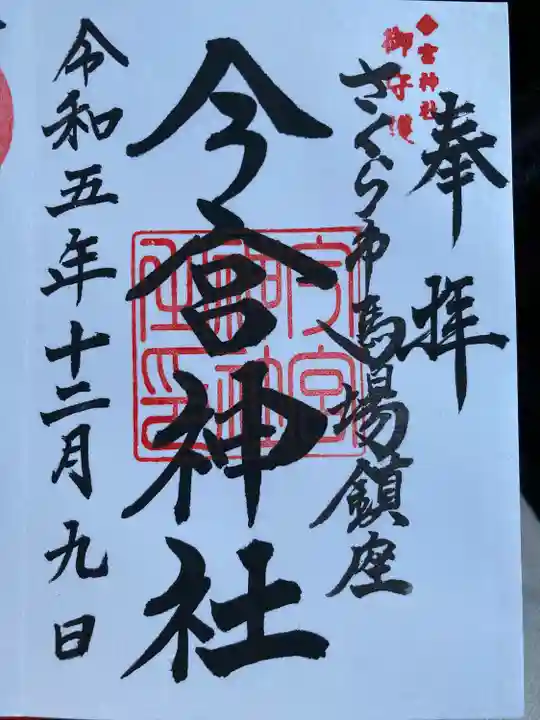 奉拝
今宮神社
御守護
さくら市馬場鎮座
今宮神社
令和五年十二月九日